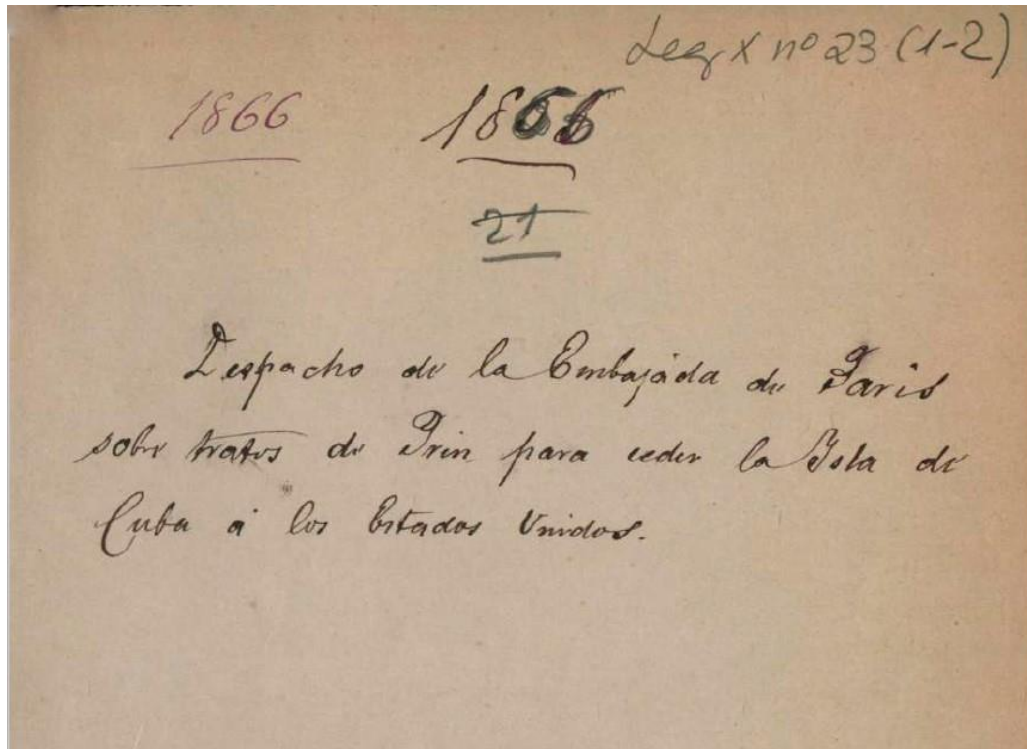 Leg X nº 23 (1-2)
1866 1866
21
Despacho de la Embajada de Paris
sobre tratos de Prin para ceder la Isla de
Cuba á los Estados Unidos.